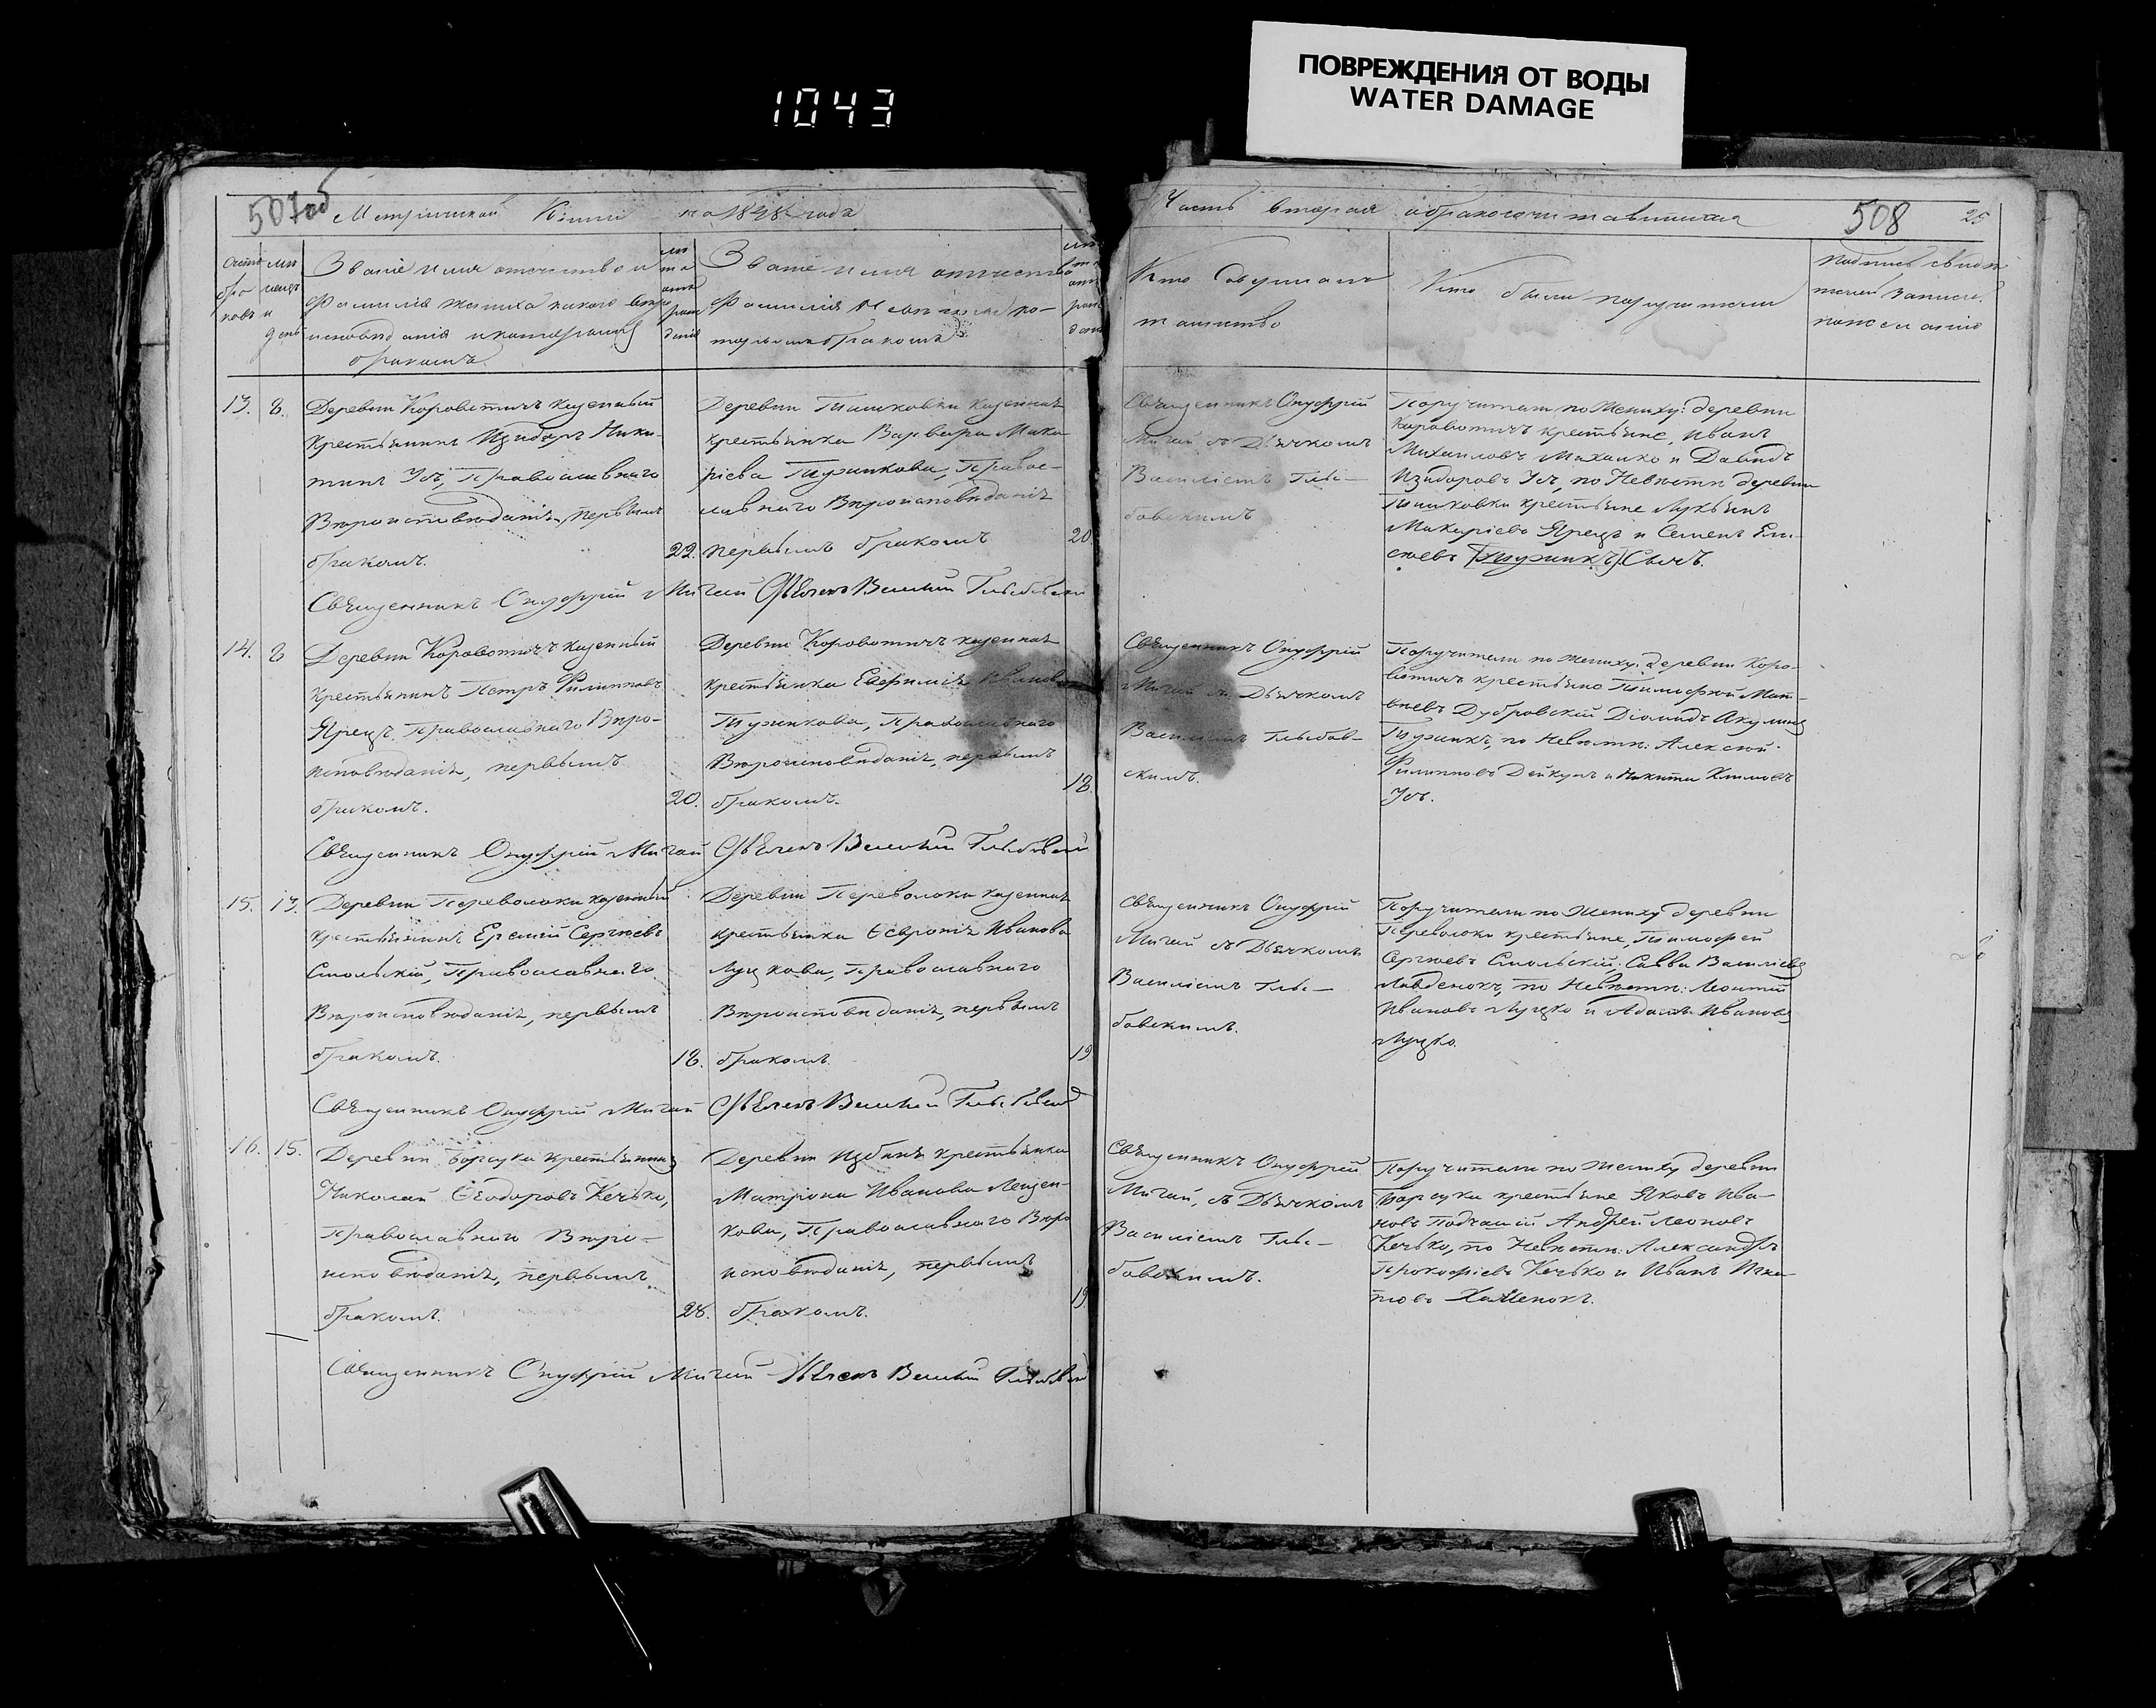 ПОВРЕЖДЕНИЯ ОТ ВОДЫ
WATER DAMAGE
1043
507об
Метрической Книги на 1848 года
Часть вторая о бракосочетавшихся
508
25
Званіе имя отчество и
фамилія жениха какого веро
исповеданія и которымъ
бракомъ.
Званіе имя отчество
фамилія
бракомъ
Кто Совершалъ
таинство
Кто были поручители
13. 8.
Деревни Коровотичъ казенный
крестьянинъ Изидоръ Ники-
тинъ Усъ, Православнаго
Вѣроисповѣданія, первымъ
бракомъ.
22.
Деревни Тишковки казенная
крестьянка Варвара Мака
ріева Тужикова, Правос-
лавнаго Вѣроисповѣданія
первымъ бракомъ
20
Священникъ Онуфрій
Мигай съ Дьячкомъ
Василіемъ Глы-
бовскимъ
Поручители по Жениху: деревни
Коровотичъ крестьяне, Иванъ
Михайловъ Махалко и Давидъ
Изидоровъ Усъ, по Невѣстѣ деревни
Тишковки крестьяне Лукьянъ
Макаріевъ Ярецъ и Семенъ Ели-
сѣевъ (Тужикъ) Сычъ.
Священникъ Онуфрій Мигай Дьячекъ Василій Глыбовскій
14. 8
Деревни Коровотичъ казенный
крестьянинъ Петръ Филипповъ
Ярецъ, Православнаго Вѣро-
исповѣданія, первымъ
бракомъ.
20.
Деревни Коровотичъ казенная
крестьянка Евфимія
Тужикова, Православнаго
Вѣроисповѣданія, первымъ
бракомъ.
18.
Священникъ Онуфрій
Мигай съ Дьячкомъ
Василіемъ Глыбов-
скимъ.
Поручители по Жениху: деревни Коро-
вотичъ крестьяне Тимофей Мат-
вѣевъ Дубровскій Діомидъ Акулинъ
Тужикъ, по Невѣстѣ: Алексѣй
Филипповъ Дейкунъ и Никита Климовъ
Усъ.
Священникъ Онуфрій Мигай Дьячекъ Василій Глыбовскій
15. 13.
Деревни Переволоки казенный
крестьянинъ Еремій Сергѣевъ
Смольскій, Православнаго
Вѣроисповѣданія, первымъ
бракомъ.
18.
Деревни Переволоки казенная
крестьянка Ѳевронія Иванова
Луцкова, Православнаго
Вѣроисповѣданія, первымъ
бракомъ.
19
Священникъ Онуфрій
Мигай съ Дьячкомъ
Василіемъ Глы-
бовскимъ.
Поручители по Жениху деревни
Переволоки крестьяне, Тимофей
Сергѣевъ Смольскій, Савва Василіевъ
Лавденокъ, по Невѣстѣ: Леонтій
Ивановъ Луцко и Адамъ Ивановъ
Луцко.
Священникъ Онуфрій Мигай Дьячекъ Василій Глыбовскій
16. 15.
Деревни Борсуки крестьянинъ
Николай Ѳеодоровъ Кечко,
Православнаго Вѣро-
исповѣданія, первымъ
бракомъ.
28.
Деревни Избинъ крестьянка
Матрона Иванова
кова, Православнаго Вѣро
исповѣданія, первымъ
бракомъ.
19
Священникъ Онуфрій
Мигай, съ Дьячкомъ
Василіемъ Глы-
бовскимъ.
Поручители по Жениху деревни
Борсуки крестьяне Яковъ Ива-
новъ Подчашій Андрей Леоновъ
Кечко, по Невѣстѣ: Александръ
Прокофіевъ Кечко и Иванъ
Хаменокъ.
Священникъ Онуфрій Мигай Дьячекъ Василій Глыбовскій